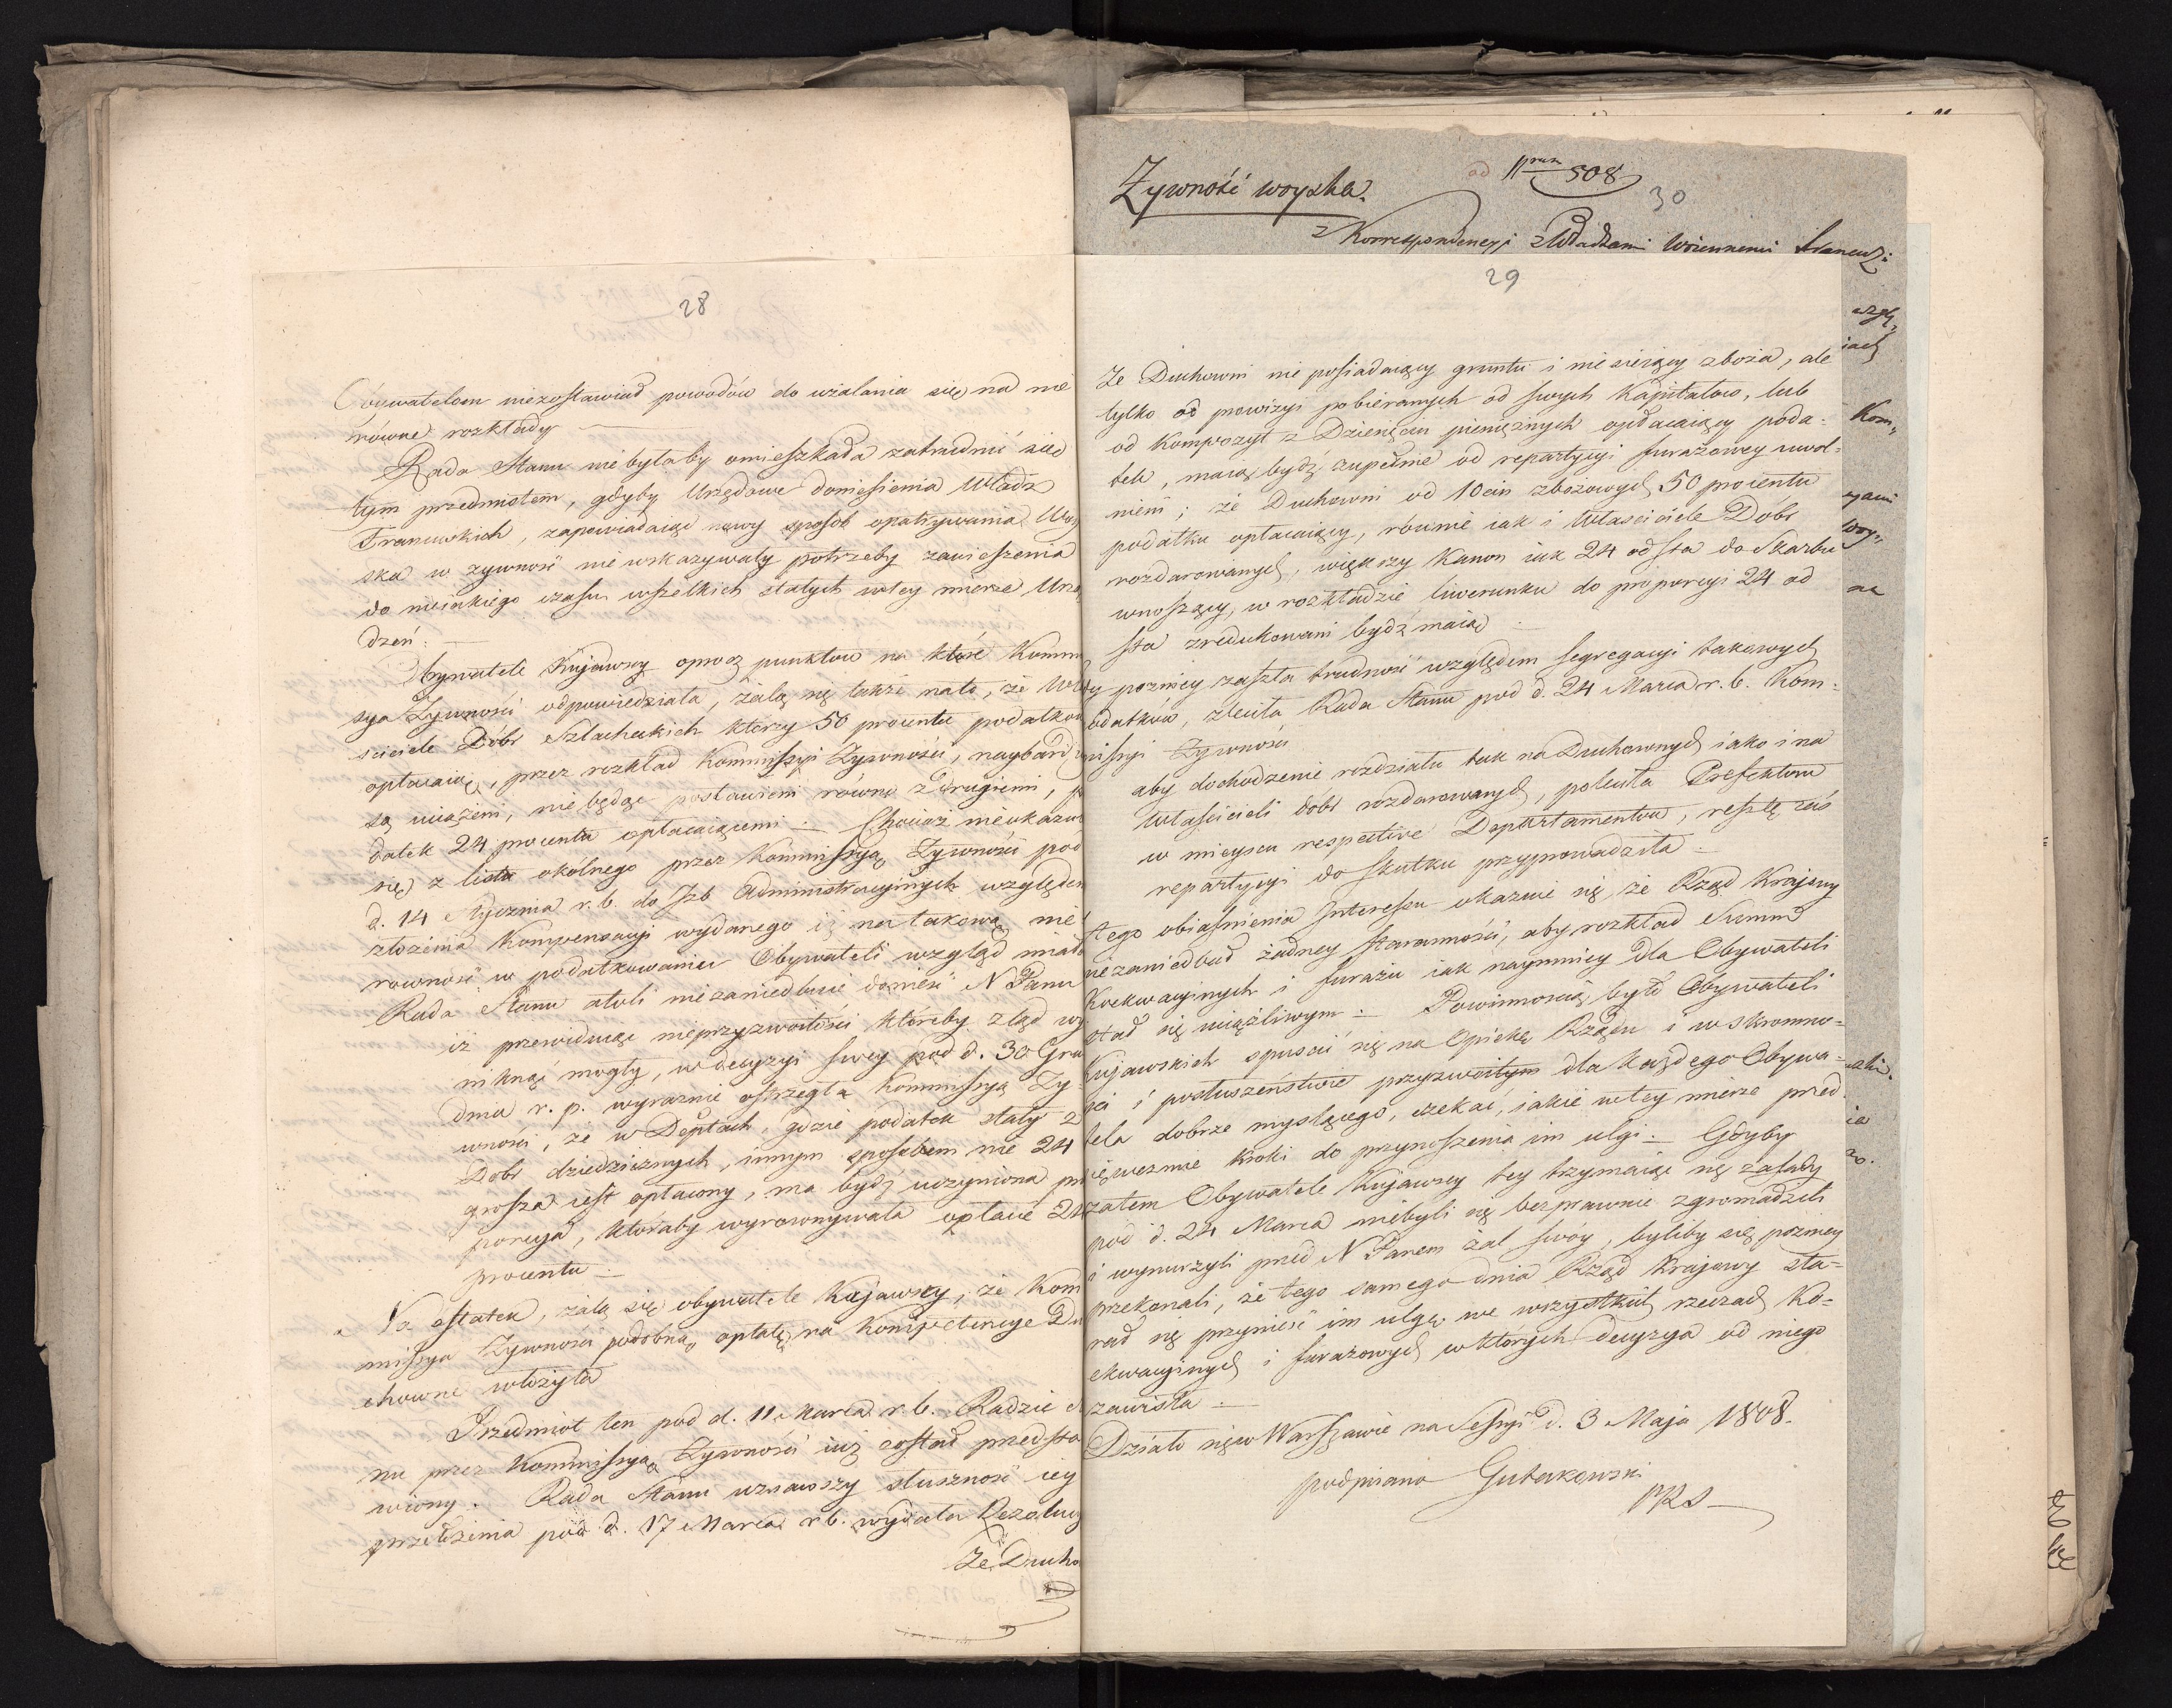 28
Obywatelom niezostawiać powodów do uzalania się na nie
równe rozkłady
Rada Stanu niebyłaby omieszkała zatrudnić się
tym przedmiotem, gdyby Urzędowe doniesienia Władz
Francuskich, zapowiadaiąc nowy sposób opatrywania Woy
ska w zywność nie wskazywały potrzeby zawieszenia
do nieiakiego czasu wszelkich stałych wtey mierze Urzą
dzeń.
Obywatele Kujawscy oprocz punktow na które Kommi
sya Zywności odpowiedziała, żalą się także nato, że Wła
sciciele Dóbr Szlacheckich ktorzy 50 procentu podatkow
opłacaią, przez rozkład Kommissyi Zywności, naybardziey
są uciążeni, nie będąc postawieni równo z drugiemi, po
datek 24 procentu opłacaiącemi. Chociaż nieukazuie
się z listu okólnego przez Kommissyą Zywności pod
d. 14 Stycznia r.b. do Izb Administracyinych względem
złożenia Kompensacyi wydanego iż na takową nie
rowność w podatkowaniu Obywateli wzgląd miała
Rada Stanu atoli niezaniedbuie donieść N Panu
iż przewiduiąc nieprzyzwoitości któreby ztąd wy
niknąć mogły, w decyzyi swey pod d. 30 Gru
dnia r.p. wyraznie ostrzegła Kommissyą Zy
wności, że w Deptach, gdzie podatek stały z
Dobr dziedzicznych, innym sposobem nie 24
grosza iest opłacony, ma bydź uczyniona pro
porcya, któraby wyrownywała opłacie 24
procentu
Na ostatek, żalą się obywatele Kujawscy, że Kom
missya Zywności podobną opłatę na Kompetencye Du
chowne włożyła
Przedmiot ten pod d. 11 Marca r.b. Radzie Sta
nu przez Kommissyą Zywności iuż został przedsta
wiony. Rada Stanu uznawszy słuszność iey
przełożenia pod d. 17 Marca r.b. wydała Rezolucyą
Że Ducho
Zywność woyska.
od Nrum 508
30
z Korrespondencyi z Władzami Woiennemi Francuz:
29
Że Duchowni nie posiadaiący gruntu i nie sieiący zboża, ale
tylko od prowizyi pobieranych od swych Kapitałow, lub
od Kompozyt z Dziesięcin pieniężnych opłacaiący poda-
tek, maią bydź zupełnie od repartycyi furażowey uwol-
nieni; że Duchowni od 10cin zbożowych 50 procentu
podatku opłacaiący, równie iak i Właściciele Dóbr
rozdarowanych, większy Kanon iak 24 od sta do Skarbu
wnoszący, w rozkładzie liwerunku do proporcyi 24 od
sta zredukowani bydź maią
Gdy pozniey zaszła trudność względem segregacyi takowych
podatków, zleciła Rada Stanu pod d. 24 Marca r.b. Kom-
missyi Zywności
aby dochodzenie rozdziału tak na Duchownych iako i na
Właścicieli dóbr rozdarowanych, poleciła Prefektom
w mieyscu respective Departamentow, resztę zaś
repartycyi do skutku przyprowadziła
Z tego obiaśnienia Interessu okazuie się, że Rząd Kraiowy
niezaniedbał żadney staranności, aby rozkład Summ
Koekwacyinych i furażu iak naymniey dla Obywateli
stał się uciążliwym. Powinnością było Obywateli
Kujawskich spuścić się na Opiekę Rządu i w skromno-
ści i posłuszeństwie przyzwoitym dla każdego Obywa-
tela dobrze myslącego, czekać, jakie wtey mierze przed-
sięweźmie kroki do przynoszenia im ulgi. Gdyby
zatem Obywatele Kujawscy tey trzymaiąc się zasady
pod d. 24 Marca niebyli się bezprawnie zgromadzili
i wynurzyli przed N Panem żal swóy, byliby się pozniey
przekonali, że tego samego dnia Rząd Kraiowy sta-
rał się przynieść im ulgę we wszystkich rzeczach Ko-
ekwacyinych i furażowych w których decyzya od niego
zawisła.
Działo się w Warszawie na Sessyi d. 3 Maja 1808.
podpisano Gutakowski
PRS
wzglę
iach
Kom
Woy
na